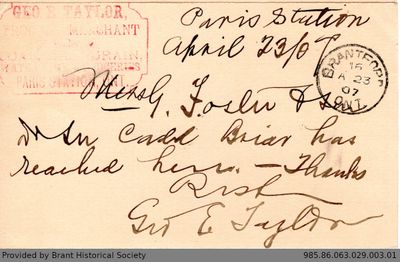 GEO E TAYLOR,
MERCHANT
GRAIN,
PARIS STATION, ONT.
Paris Station
April 23/07
BRANTFORD
16
A 23
07
ONT.
Messrs G. Foster & Son
Dr Sir Card Briar has
reached here. — Thanks
Geo E Taylor
Provided by Brant Historical Society
985.86.063.029.003.01